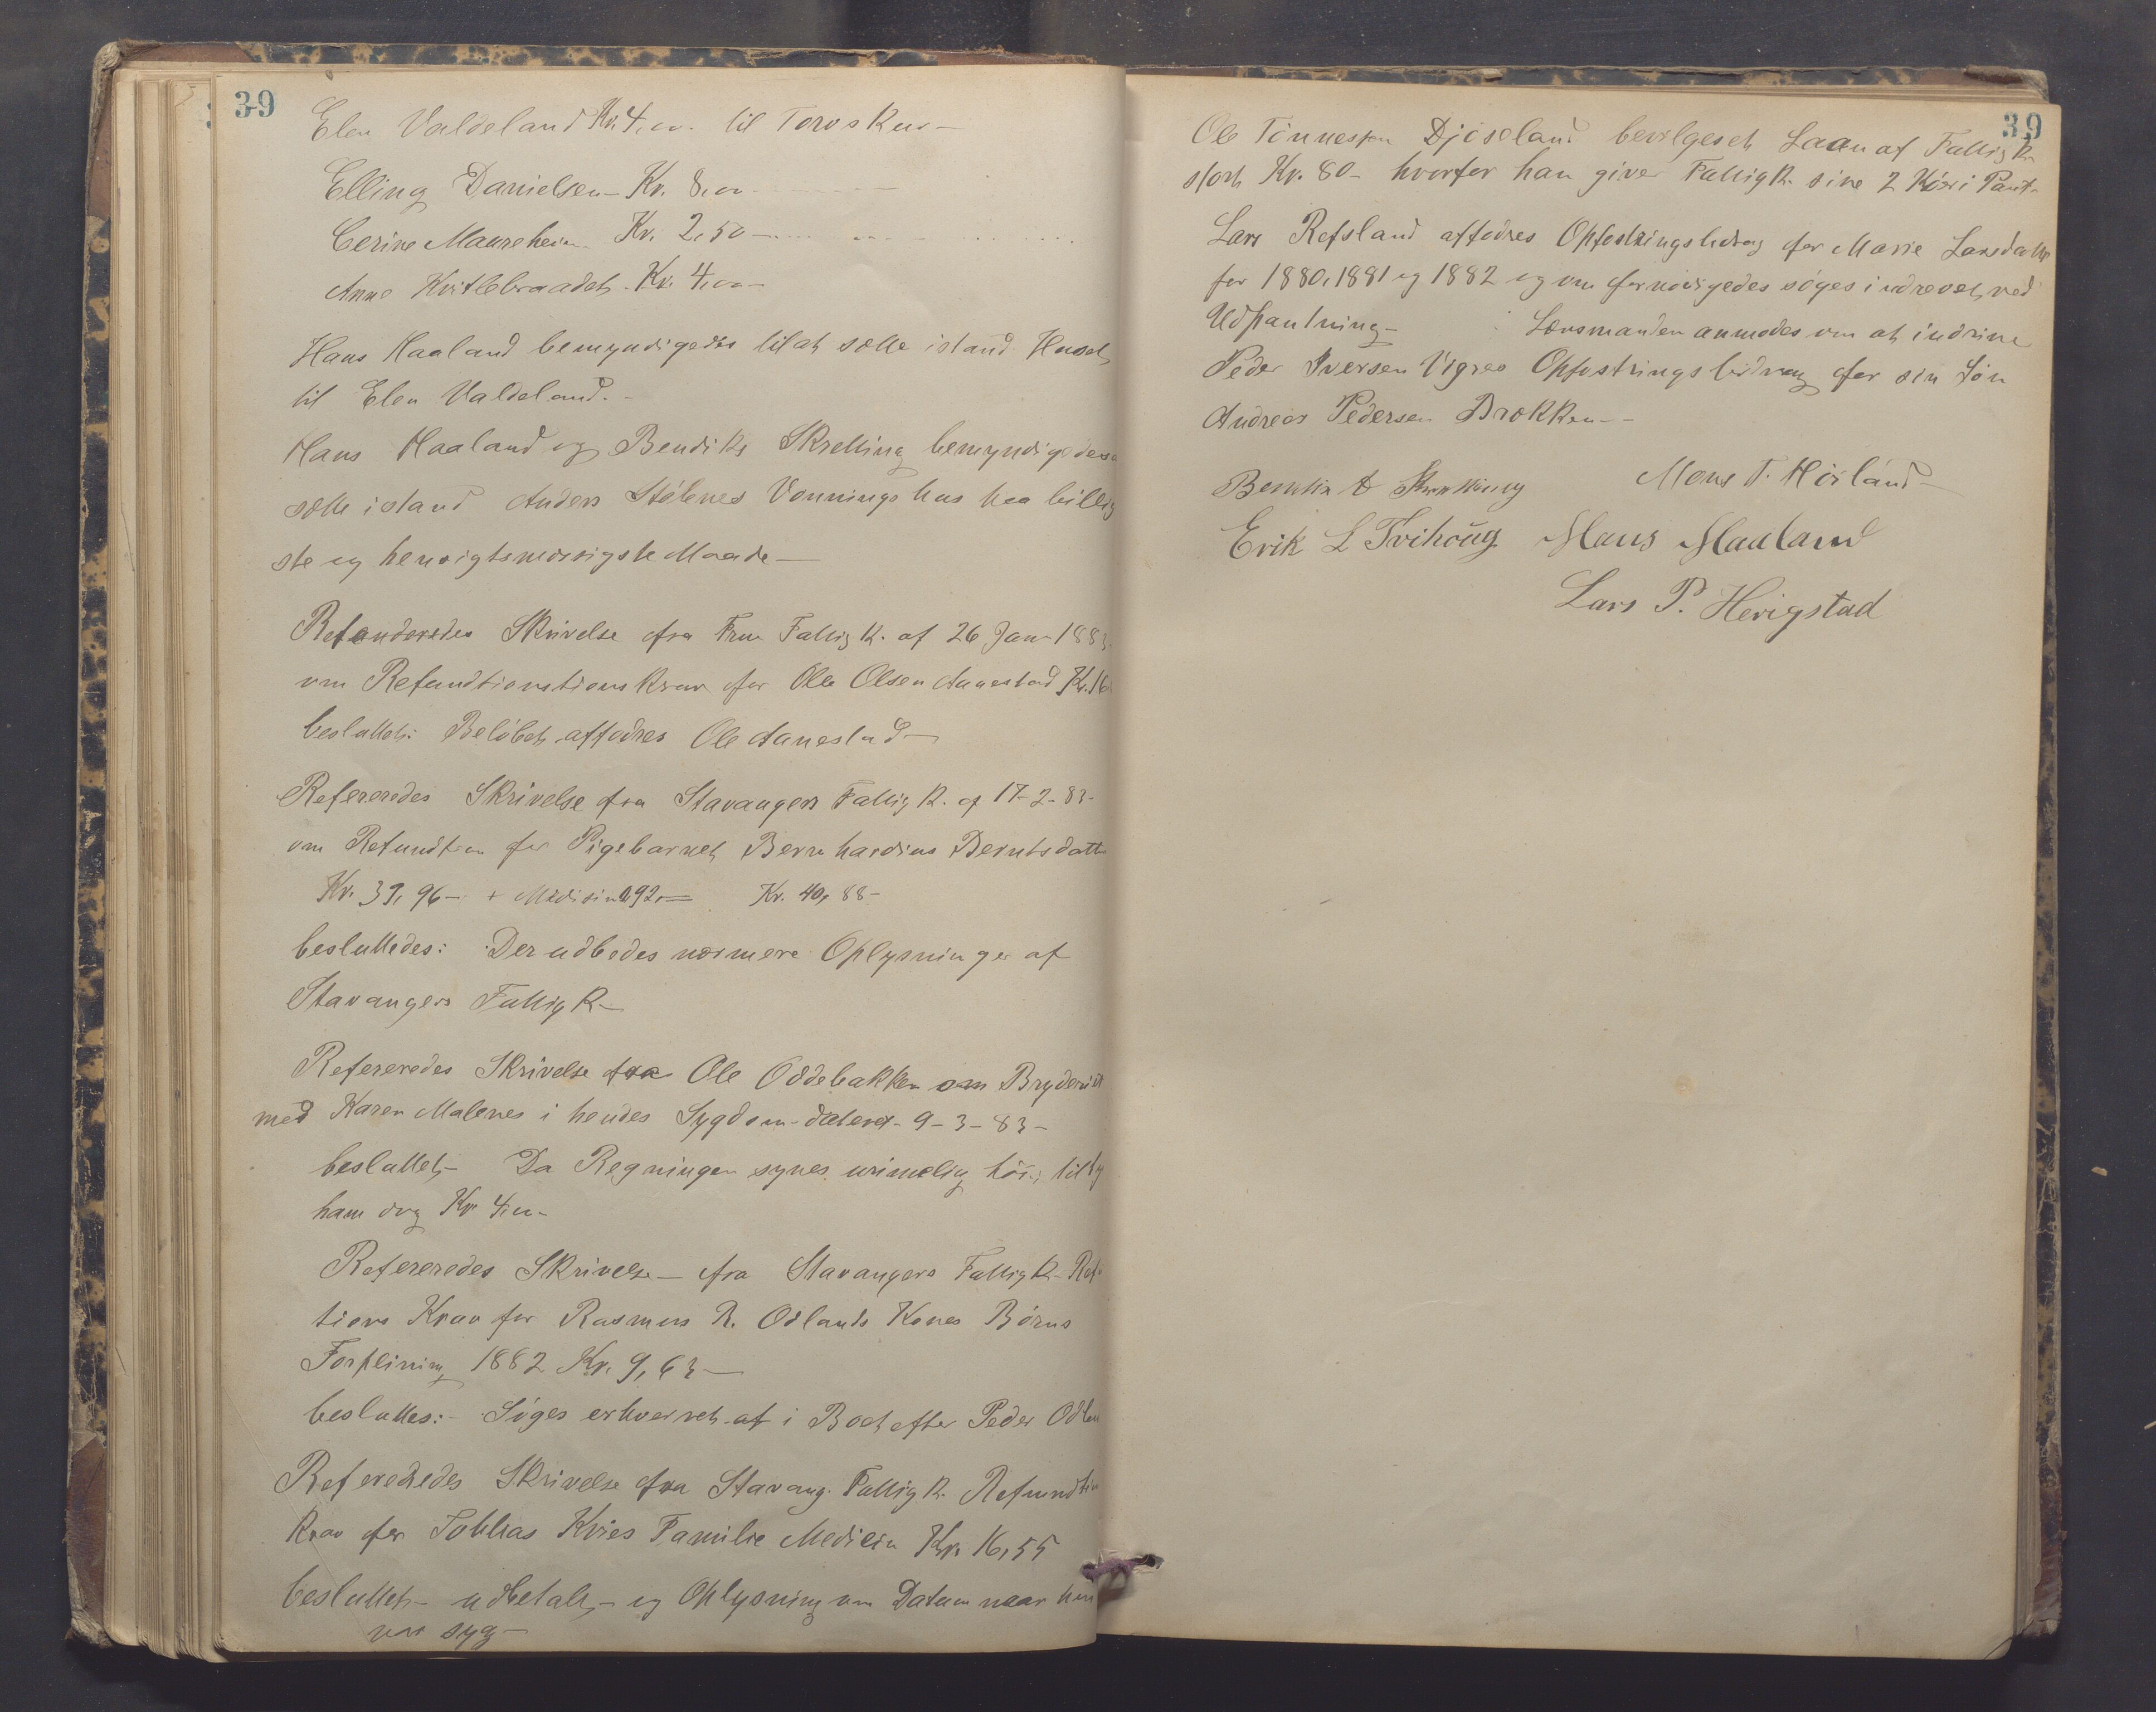 39
Elen Valdeland Kr. 4,00. til Torvskur
Elling Danielsen - Kr. 8,00
Cerine Maureheim Kr. 2,50
Anne Kvitlebraadet - Kr. 4,00 -
Hans Haaland bemyndigedes til at sætte istand Huset
til Elen Valdeland. -
Hans Haaland og Bendiks Skretting bemyndigedes
sætte istand Anders Stølenes Vonningshus paa billig
ste og hensigtsmæssigste Maade -
Refereredes Skrivelse fra Frue Fattigk. af 26 Jan 1883
om Refundtionstionskrav for Ole Olsen Aanestad Kr. 16
besluttet: Beløbet affodres Ole Aanestad -
Refereredes Skrivelse fra Stavangers Fattigk. af 17-2-83-
om Refundtion for Pigebarnet Bernhardine Berntsdatt
Kr. 39,96 - + Medisin 0,92 = Kr. 40,88 -
besluttedes: Der udbedes nærmere Oplysninger af
Stavangers Fattigk -
Refereredes Skrivelse fra Ole Oddebakken om Bryderiet
med Karen Malenes i hendes Sygdom - dateret - 9-3-83 -
besluttet, - Da Regningen synes urimelig
ham dog Kr 4,00 -
Refereredes Skrivelse - fra Stavangers Fattigk - Ref
tions Krav for Rasmus R. Ødlands Kones Børns
Forpleining 1882 Kr. 9,63 -
besluttes: - Søges erhvervet af i Boet efter Peder Ødlan
Refereredes Skrivelse fra Stavang. Fattigk. Refundtion
Krav for Tobias Kries Familie Medicin Kr. 16,55
besluttet - udbetalt, - og Oplysning om Datum naar hun
var syg -
39
Ole Tønnessen Djøseland bevilgeset Laan af Fattigk.
stort Kr. 80 - hvorfor han giver Fattigk. sine 2 Kjør i Pant -
Lars Refsland affodres Opfostringsbidrag for Marie Larsdatter
for 1880, 1881 og 1882 og om fornødiges søges indrevet ved
Udpantning - Lensmanden anmodes om at indrive
Peder Iversen Vigres Opfostringsbidrag for sin Søn
Andreas Pedersen Brekken -
Bendik A Skretting Mons T. Hørland
Erik L Tvihoug Hans Haaland
Lars P. Herigstad